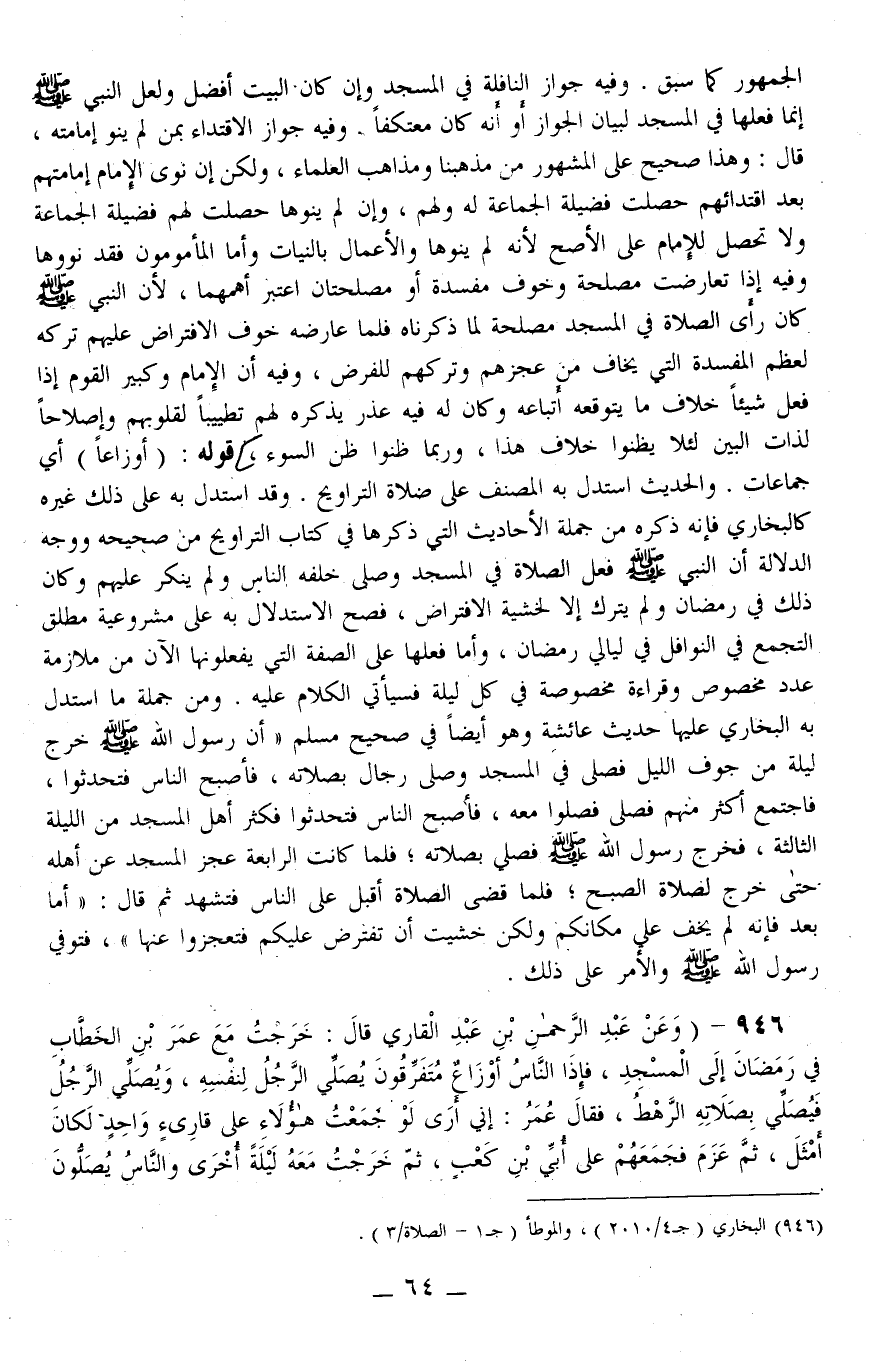 الجمهور كما سبق . وفيه جواز النافلة في المسجد وإن كان البيت أفضل ولعل النبي ﷺ
إنما فعلها في المسجد لبيان الجواز أو أنه كان معتكفاً . وفيه جواز الاقتداء بمن لم ينو إمامته ،
قال : وهذا صحيح على المشهور من مذهبنا ومذاهب العلماء ، ولكن إن نوى الإمام إمامتهم
بعد اقتدائهم حصلت فضيلة الجماعة له ولهم ، وإن لم ينوها حصلت لهم فضيلة الجماعة
ولا تحصل للإمام على الأصح لأنه لم ينوها والأعمال بالنيات وأما المأمومون فقد نووها
وفيه إذا تعارضت مصلحة وخوف مفسدة أو مصلحتان اعتبر أهمهما ، لأن النبي ﷺ
كان رأى الصلاة في المسجد مصلحة لما ذكرناه فلما عارضه خوف الافتراض عليهم تركه
لعظم المفسدة التي يخاف من عجزهم وتركهم للفرض ، وفيه أن الإمام وكبير القوم إذا
فعل شيئاً خلاف ما يتوقعه أتباعه وكان له فيه عذر يذكره لهم تطييباً لقلوبهم وإصلاحاً
لذات البين لئلا يظنوا خلاف هذا ، وربما ظنوا ظن السوء . قوله : ( أوزاعاً ) أي
جماعات . والحديث استدل به المصنف على صلاة التراويح . وقد استدل به على ذلك غيره
كالبخاري فإنه ذكره من جملة الأحاديث التي ذكرها في كتاب التراويح من صحيحه ووجه
الدلالة أن النبي ﷺ فعل الصلاة في المسجد وصلى خلفه الناس ولم ينكر عليهم وكان
ذلك في رمضان ولم يترك إلا لخشية الافتراض ، فصح الاستدلال به على مشروعية مطلق
التجمع في النوافل في ليالي رمضان ، وأما فعلها على الصفة التي يفعلونها الآن من ملازمة
عدد مخصوص وقراءة مخصوصة في كل ليلة فسيأتي الكلام عليه . ومن جملة ما استدل
به البخاري عليها حديث عائشة وهو أيضاً في صحيح مسلم « أن رسول الله ﷺ خرج
ليلة من جوف الليل فصلى في المسجد وصلى رجال بصلاته ، فأصبح الناس فتحدثوا ،
فاجتمع أكثر منهم فصلى فصلوا معه ، فأصبح الناس فتحدثوا فكثر أهل المسجد من الليلة
الثالثة ، فخرج رسول الله ﷺ فصلي بصلاته ؛ فلما كانت الرابعة عجز المسجد عن أهله
حتى خرج لصلاة الصبح ؛ فلما قضى الصلاة أقبل على الناس فتشهد ثم قال : « أما
بعد فإنه لم يخف علي مكانكم ولكن خشيت أن تفترض عليكم فتعجزوا عنها » ، فتوفي
رسول الله ﷺ والأمر على ذلك .
٩٤٦ – ( وَعَنْ عَبْدِ الرَّحمٰنِ بْنِ عَبْدِ الْقارِي قالَ : خَرَجْتُ مَعَ عمَرَ بْنِ الخَطَّابِ
في رَمَضَانَ إلَى الْمسْجِدِ ، فإذَا النَّاسُ أوْزَاعٌ مُتَفَرِّقُونَ يُصَلِّي الرَّجُلُ لِنفْسِهِ ، وَيُصَلِّي الرَّجُلُ
فَيُصَلِّي بِصَلَاتِهِ الرَّهْطُ ، فقالَ عُمَرُ : إني أَرَى لَوْ جَمَعْتُ هـٰؤُلَاءِ على قارىءٍ وَاحِدٍ لَكانَ
أَمْثَلَ ، ثمَّ عَزَمَ فجَمَعَهُمْ على أُبيِّ بْنِ كَعْبٍ ، ثمّ خَرَجْتُ مَعَهُ لَيْلَةً أُخْرَى والنَّاسُ يُصَلُّونَ
(٩٤٦) البخاري ( جـ٤/٢٠١٠ ) ، والموطأ ( جـ١ – الصلاة/٣ ) .
— ٦٤ —